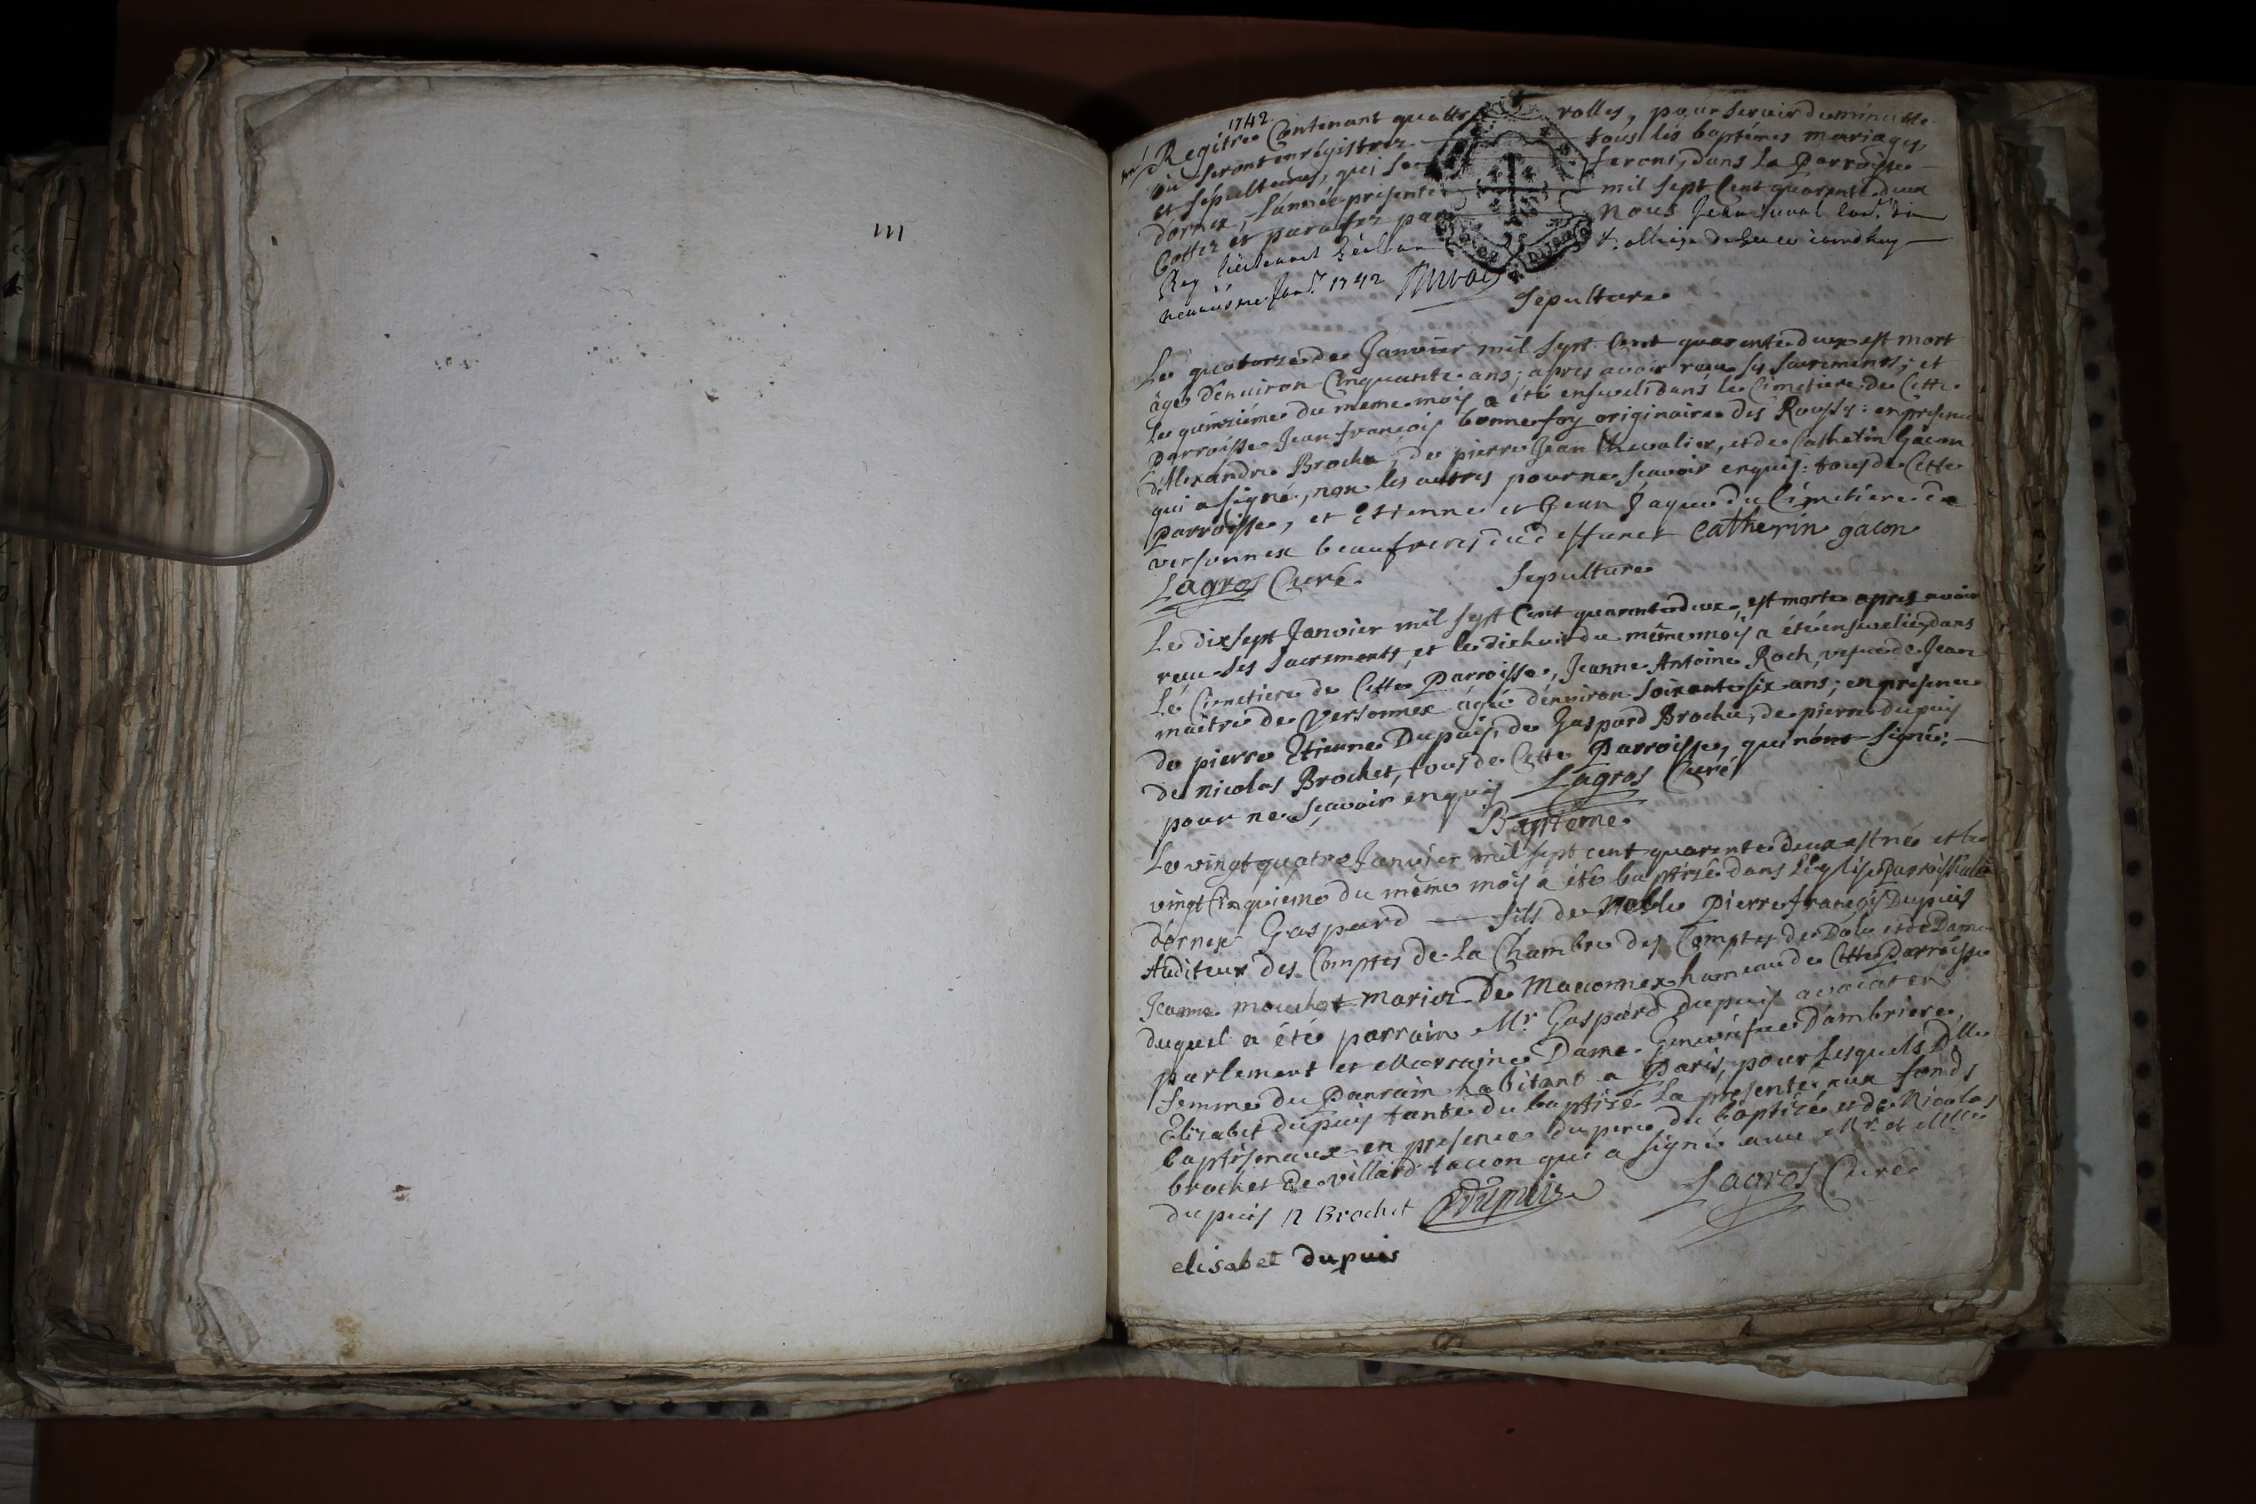 111
1742
Regitre Contenant quattre rolles, pour servir de minutte
où seront enrégistrez tous les baptêmes mariages,
et sépultures, qui se feront, dans la Parroisse
dornex, l'année présente mil sept Cent quarente deux
Cottez et parafez par Nous
neuvième Janr. 1742
Sépulture
Le quatorze de Janvier mil sept Cent quarente deux est mort
âgé d'environ Cinquante ans; apres avoir reçu ses sacremens; et
le quinziéme du meme mois a été enseveli dans le Cimetiere de Cette
parroisse Jean françois bonnefoy originaire des Rousses: en presence
d'Alexandre Brochu, de pierre Jean Chevalier, et de Catherin Gacon
qui a signé, non les autres pour ne sçavoir enquis: tous de Cette
parroisse, et etienne et Jean Jaque du Cimetiere de
versonnex beaufreres du deffunct Catherin gacon
Lagros Curé
Sepulture
Le dix sept Janvier mil sept Cent quarente deux, est morte apres avoir
reçu ses sacrements, et le dix huit du même mois a été ensevelie, dans
Le Cimetiere de Cette Parroisse, Jeanne Antoine Roch, vefue de Jean
maître de Versonnex âgé d'environ soixante six ans; en presence
de pierre Etienne Dupuis, de Gaspard Brochu, de pierre dupuis
de nicolas Brochet, tous de Cette Parroisse, qui n'ont signé;
pour ne sçavoir enquis Lagros Curé
Baptême
Le vingt quatre Janvier mil sept cent quarente deux est né et le
vingt Cinquieme du même mois a été baptisé dans l'église Parroissiale
d'ornex Gaspard fils de Noble Pierre françois Dupuis
Auditeur des Comptes de la Chambre des Comptes de Dole et de Dame
Jeanne mouchet mariez De Maconnex hameau de Cette Parroisse
duquel a été parrain Mr. Gaspard Dupuis avocat en
parlement et Marraine Dame Geneviefve Dambriere,
femme du Parrain habitant a Paris, pour lesquels Dlle
Elisabet dupuis tante du baptisé la presenté aux fonds
baptismaux en presence du pere du baptisé et de Nicolas
brochet de villard tacon qui a signé avec Mr. et Mlle
dupuis N Brochet Dupuis Lagros Curé
elisabet dupuis